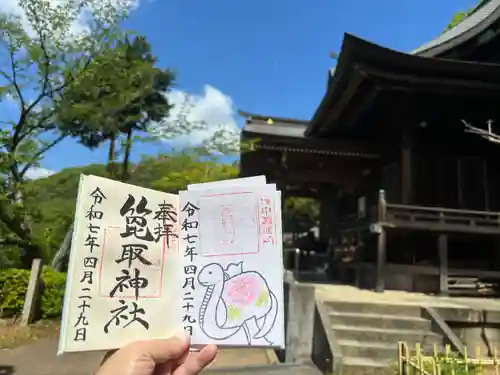 奉拝
箆取神社
令和七年四月二十九日
令和七年四月二十九日